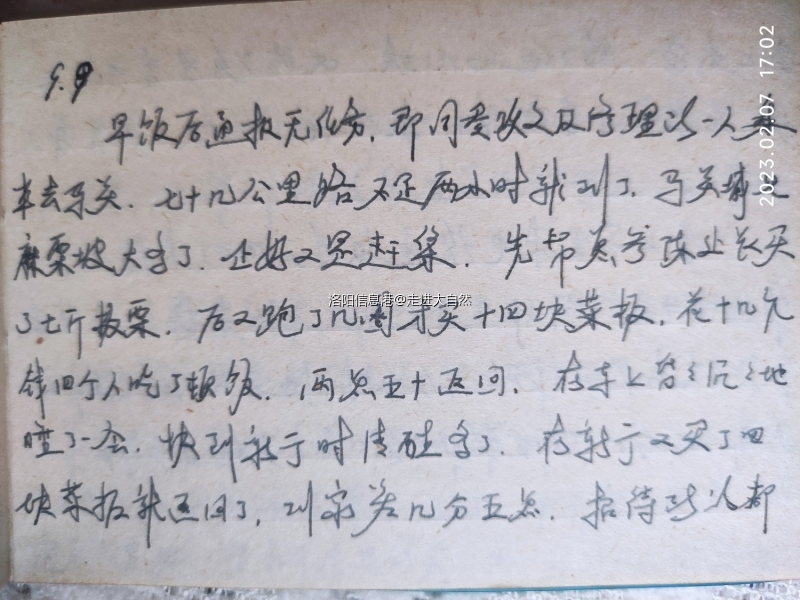 9.9
早饭后通报无任务,即同委政文及管理沙一人乘
车去马关。七十几公里路不足两小时就到了。马关城比
麻栗坡大多了。正好又是赶集。先帮总参陈处长买
了七斤板栗。后又跑了几圈才买十四块菜板,花十几元
钱四个人吃了顿饭。两点五十返回。在车上昏昏沉沉地
睡了一会。快到新于时清醒多了。在新于又买了四
块菜板就返回了,到家差几分五点。招待所以都
2023.02.07 17:02
洛阳信息港@走进大自然